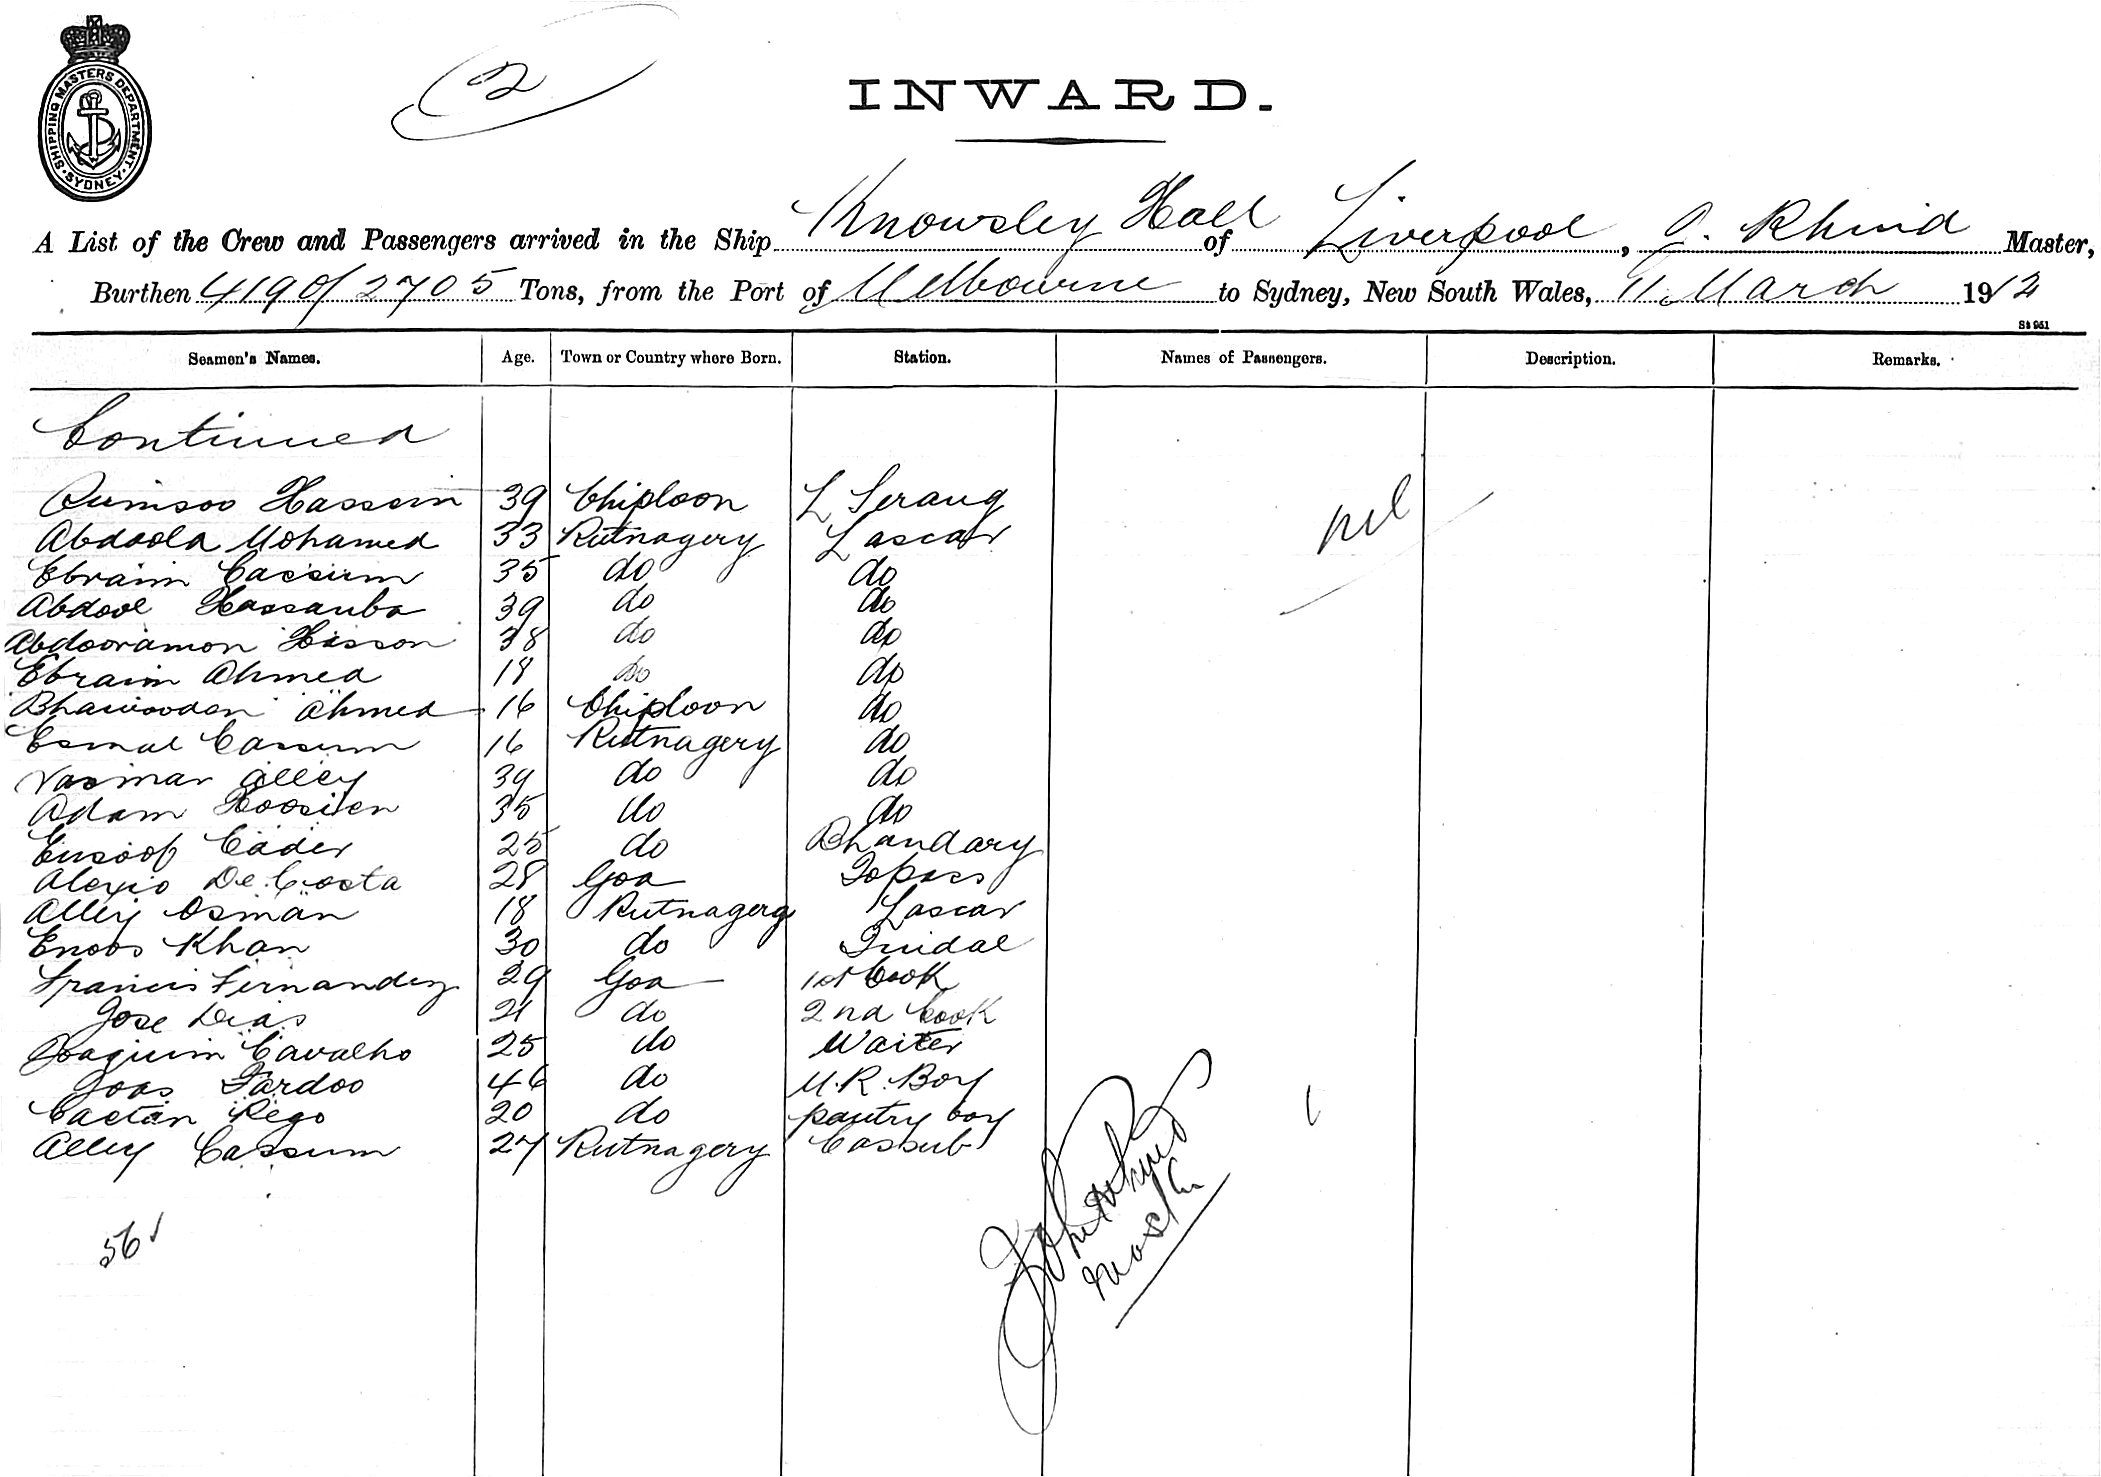 SHIPPING MASTERS DEPARTMENT. SYDNEY.
2
INWARD.
A List of the Crew and Passengers arrived in the Ship Knowsley Hall of Liverpool, J. Rhind Master,
Burthen 4190/2705 Tons, from the Port of Melbourne to Sydney, New South Wales, 11 March 1912
St 951
Seamen's Names. Age. Town or Country where Born. Station. Names of Passengers. Description. Remarks.
Continued
Hassein 39 Chiploon L Serang
nil
Abdoola Mohamed 33 Rutnagery Lascar
Ebraim Cassum 35 do do
Abdool Hassanba 39 do do
Abdooramon Hasson 38 do do
Ebraim Ahmed 18 do do
Ahmed 16 Chiploon do
Esmal Cassum 16 Rutnagery do
Alley 39 do do
Adam Hoosien 35 do do
Eusoof Cader 25 do Bhandary
Alexio De Costa 28 Goa Topass
Alley Osman 18 Rutnagery Lascar
Enoos Khan 30 do Tindal
Francis Fernandez 29 Goa 1st Cook
Jose Dias 21 do 2nd Cook
Joaquim Cavalho 25 do Waiter
Joas Fardoo 46 do M.R. Boy
Caetan Rego 20 do pantry boy
Alley Cassum 27 Rutnagery Cassub
John Rhind
Master
56